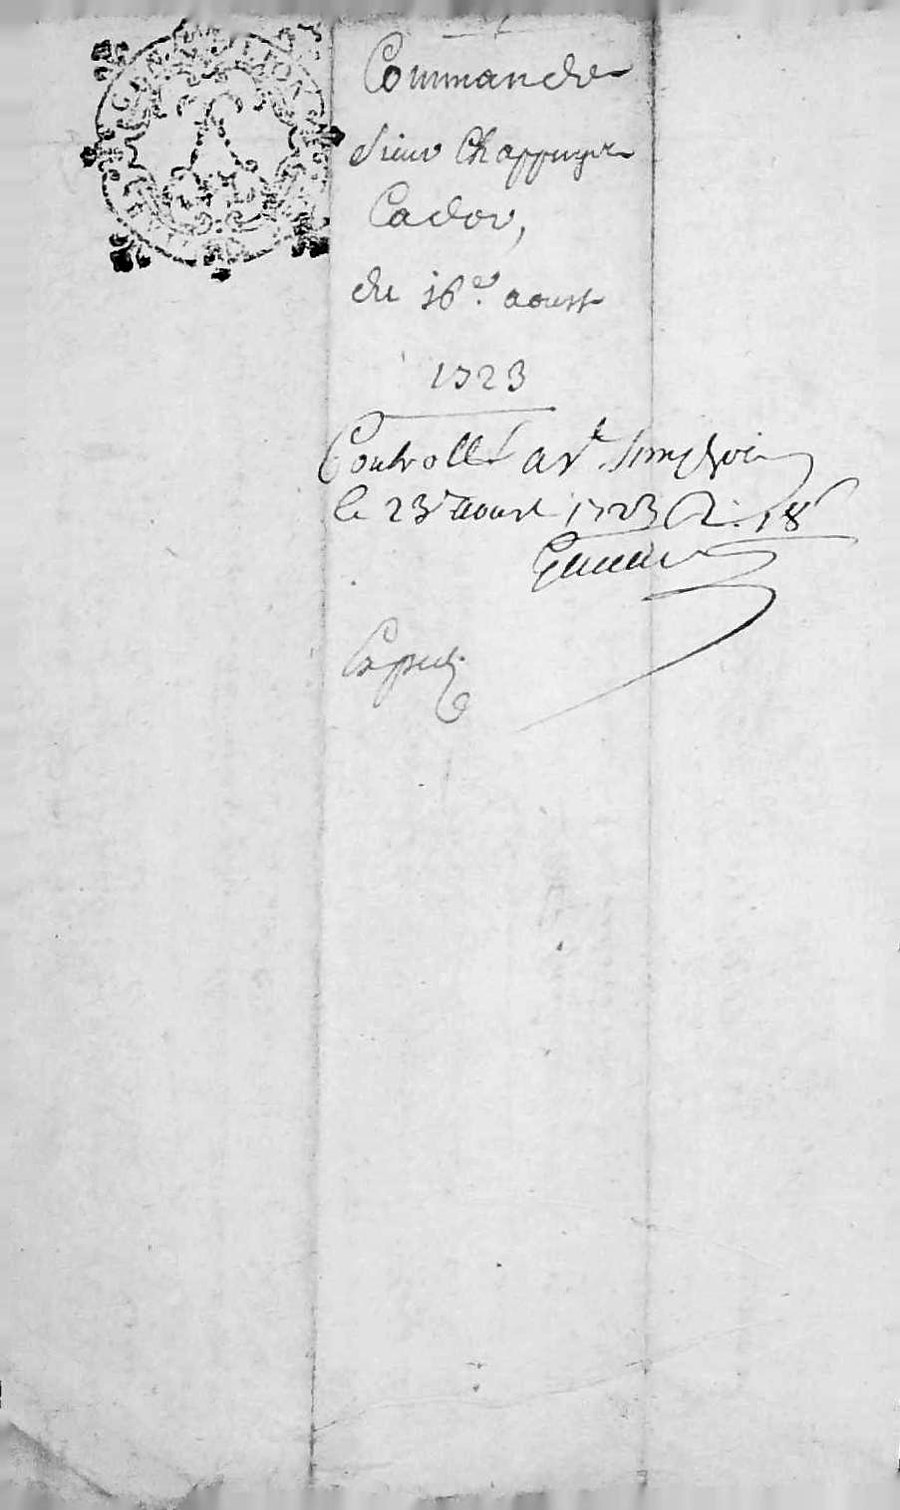 Commande
Sieur Chappuy
Cador,
du 16e. aoust
1723
Controllé a St. Simphor
le 23 aoust 1723 R. 18s
Expedié